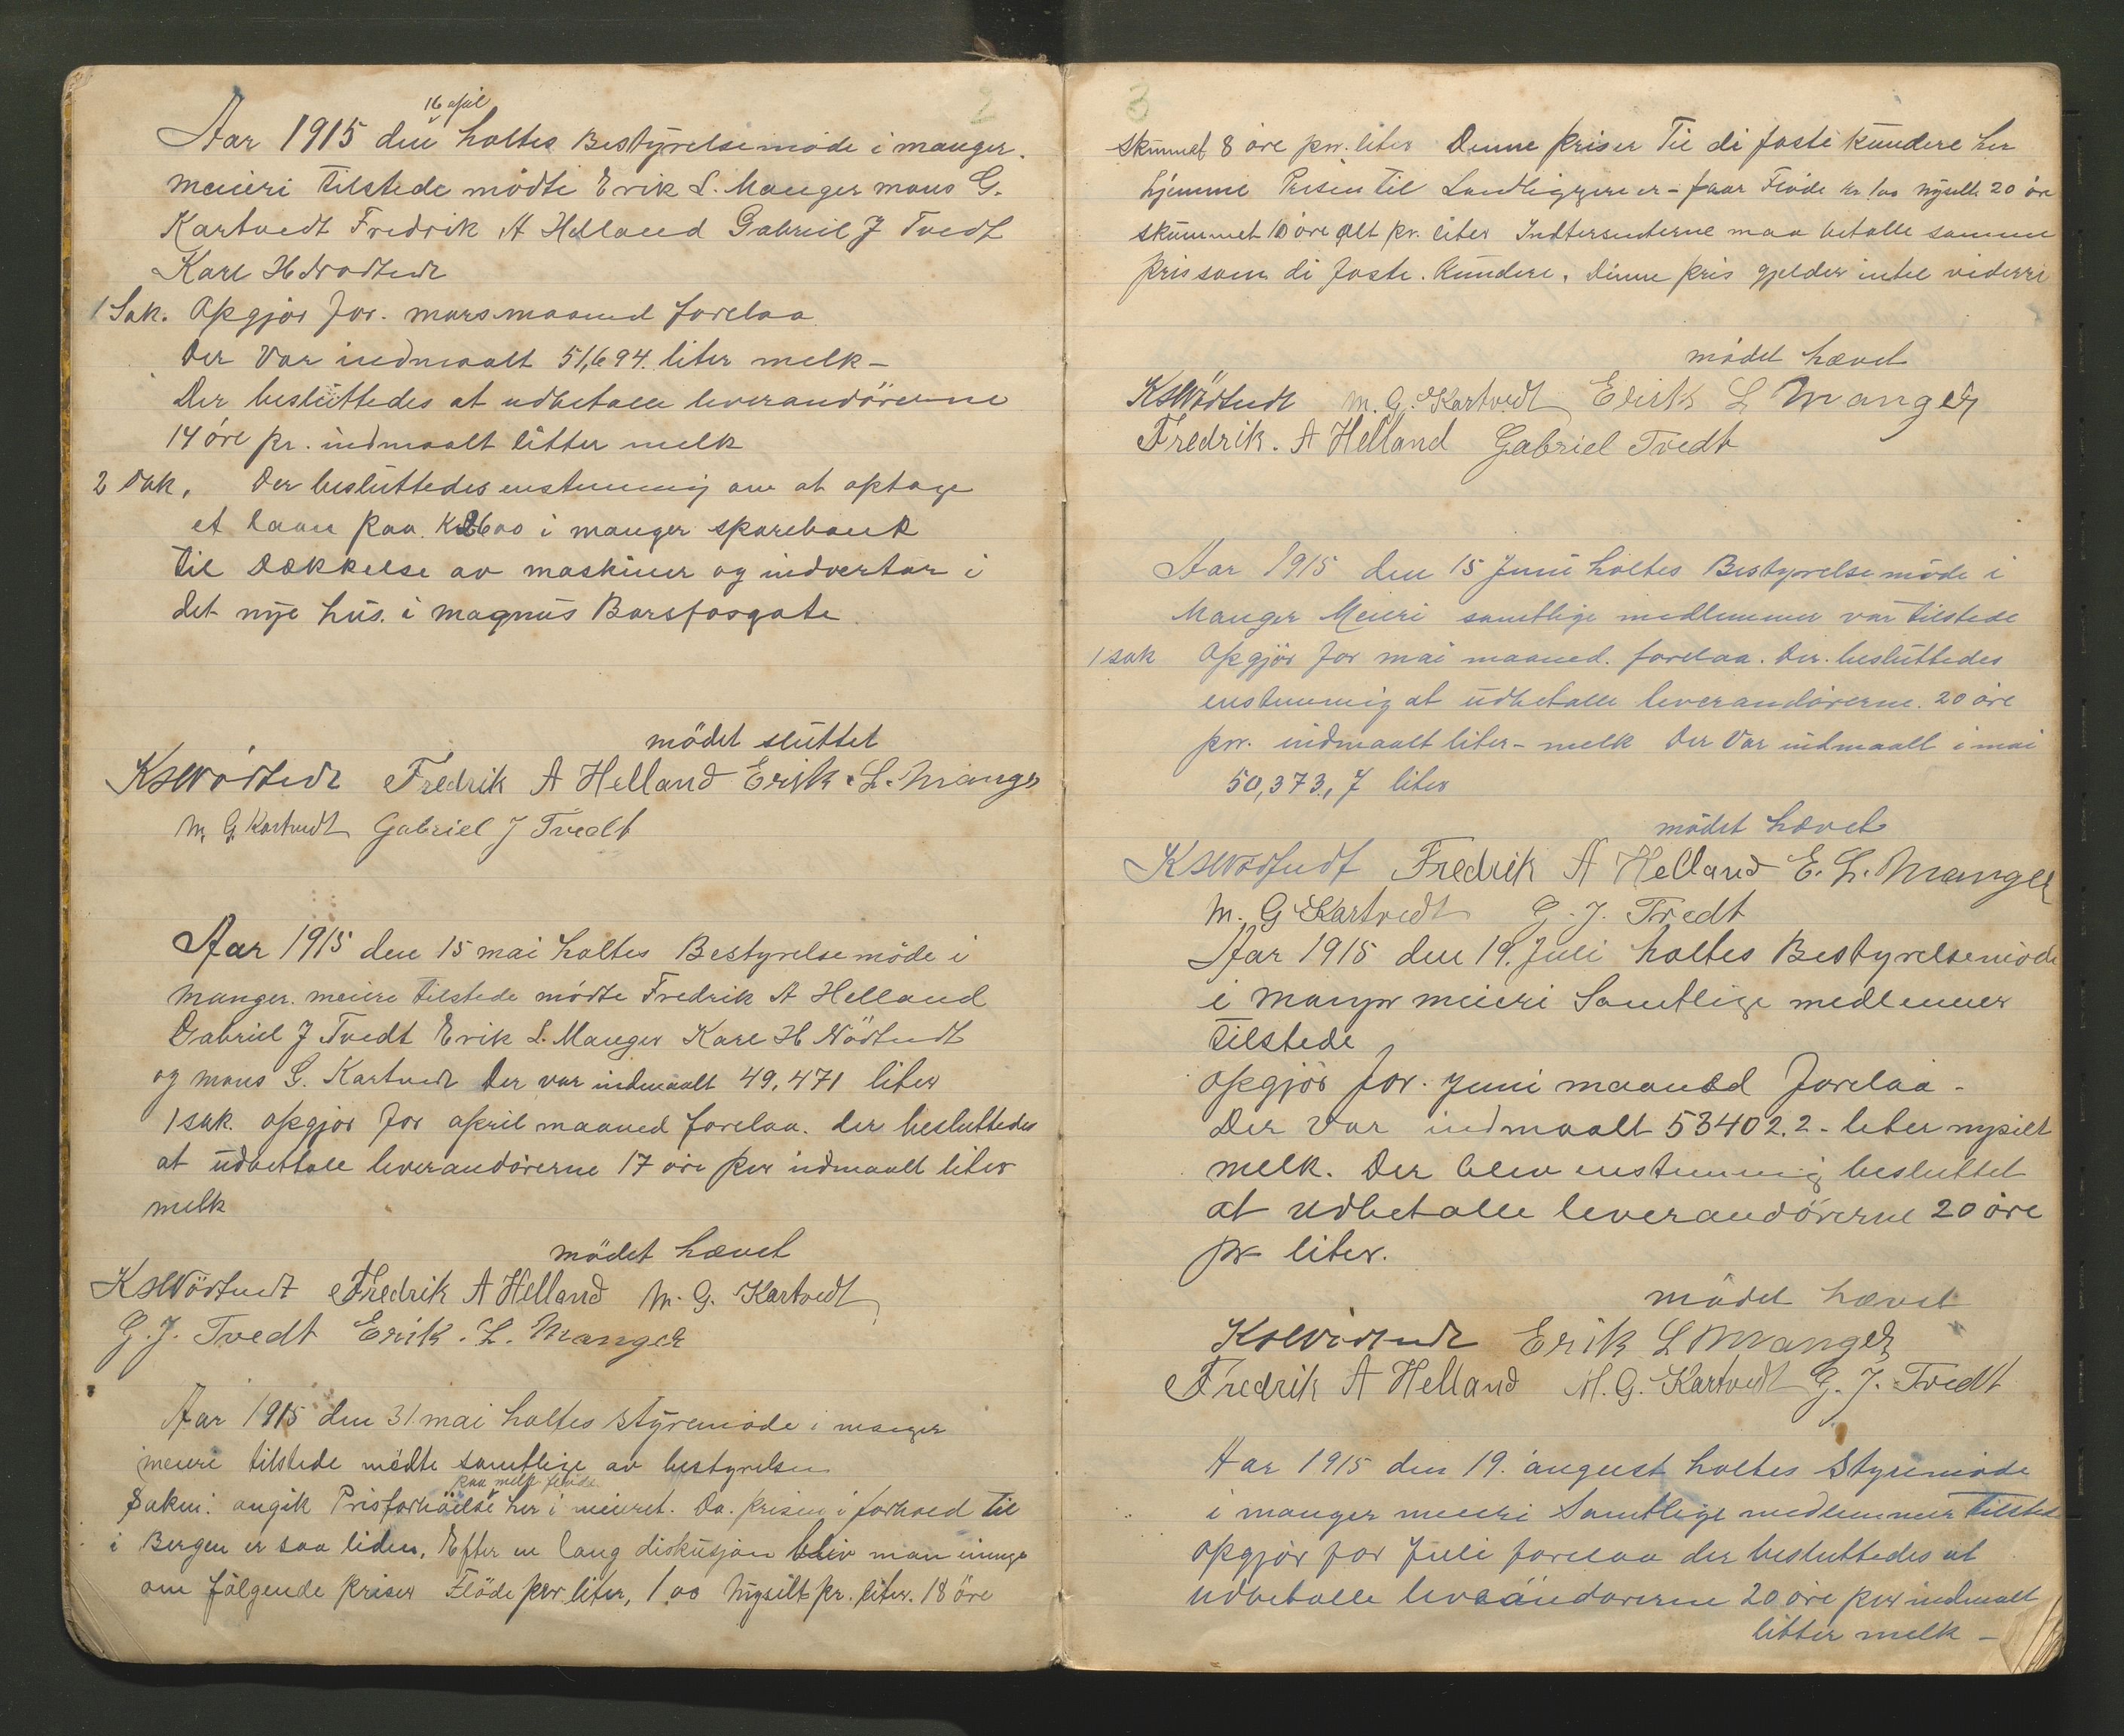 2
Aar 1915 den 16 april holtes Bestyrelsemöde i manger.
meieri tilstede mödte Erik L. Manger mons G.
Kartvedt Fredrik A Helland Gabriel J Tvedt
Karl H Nödtvedt
1 Sak. Opgjör for. marsmaaned forelaa
Der var indmaalt 51,694. liter melk –
Der besluttedes at udbetale leverandörerne
14 öre pr. indmaalt litter melk
2 Sak. Der besluttedes enstemmig om at optage
et laan paa. Kr 2600 i manger sparebank
til Dækkelse av maskiner og indvertar i
det nye hus. i magnus Barsfosgate
mödet sluttet
K H Nödtvedt Fredrik A Helland Erik. L. Manger
M. G Kartvedt Gabriel J Tvedt
Aar 1915 den 15 mai holtes Bestyrelsemöde i
manger. meiere tilstede mödte Fredrik A Helland
Gabriel J Tvedt Erik L. Manger Karl H Nödtvedt
og mons G. Kartvedt Der var indmaalt 49,471 liter
1 sak. opgjör for april maaned forelaa. der besluttedes
at udbettale leverandörerne 17 öre per indmaalt liter
melk
mödet hævet
K H Nödtvedt Fredrik A Helland M. G. Kartvedt
G. J. Tvedt Erik. L. Manger
Aar 1915 den 31 mai holtes styremöde i manger
meieri tilstede mödte samtlige av bestyrelsen
Saken: angik Prisforhöielse paa melk flöide her i meieret. Da. prisen i forhoed til
i Bergen er saa liden. Efter en lang diskusjon bleiv man einige
om fölgende priser Flöde per liter, 1.00 Nysilt pr. liter. 18 öre
3
skummet 8 öre pr. liter Denne priser Til di faste kundere her
hjemme Prisen til Landliggere er – for Flöde kr 1oo nysilt 20 öre
skummet 10 öre alt pr. liter Indtersenterne maa betalle samme
pris som di faste. kundere. Denne pris gjelder intil viderri
mödet hævet
K H Nödtvedt M. G. Kartvedt Erik L Manger
Fredrik. A Helland Gabriel Tvedt
Aar 1915 den 15 Juni holtes Bestyrelsemöde i
Manger Meieri samtlige medlemmer var tilstede
1 sak Opgjör for mai maaned. forelaa. Der. besluttedes
enstemmig at udbetalle leverandörerne. 20 öre
pr. indmaalt liter – melk Der Var indmaalt i mai
50,373,7 liter
mödet hævet
K H Nödtvedt Fredrik A Helland E. L. Manger
M. G Kartvedt G. J. Tvedt
Aar 1915 den 19. Juli holtes Bestyrelsemöde
i manger meieri Samtlige medlemmer
tilstede
opgjör for. Juni maaned forelaa –
Der Var indmaalt 53402.2 – liter nysilt
melk. Der blev enstemmig besluttet
at udbetalle leverandörerne 20 öre
pr liter.
mödet hævet
K H Nödtvedt Erik L Manger
Fredrik A Helland M. G. Kartvedt G. J. Tvedt
Aar 1915 den 19. august holtes Styremöde
i manger meieri Samtlige medlemmer tilstede
opgjör for Juli forelaa der besluttedes at
udbetalle leverandörerne 20 öre per indmalt
litter melk –